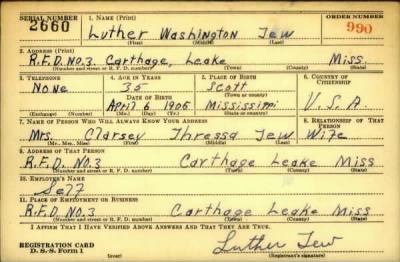 SERIAL NUMBER 1. NAME (Print) ORDER NUMBER
2660 Luther Washington Tew 990
(First) (Middle) (Last)
2. ADDRESS (Print)
R.F.D. No.3. Carthage, Leake Miss.
(Number and street or R. F. D. number) (Town) (County) (State)
3. TELEPHONE 4. AGE IN YEARS 5. PLACE OF BIRTH 6. COUNTRY OF CITIZENSHIP
None 35 Scott
DATE OF BIRTH (Town or county)
April 6 1906 Mississippi U.S.A.
(Exchange) (Number) (Mo.) (Day) (Yr.) (State or country)
7. NAME OF PERSON WHO WILL ALWAYS KNOW YOUR ADDRESS 8. RELATIONSHIP OF THAT PERSON
Mrs. Clarsey Thressa Tew Wife
(Mr., Mrs., Miss) (First) (Middle) (Last)
9. ADDRESS OF THAT PERSON
R.F.D. No.3 Carthage Leake Miss
(Number and street or R. F. D. number) (Town) (County) (State)
10. EMPLOYER'S NAME
Self
11. PLACE OF EMPLOYMENT OR BUSINESS
R.F.D. No.3 Carthage Leake Miss
(Number and street or R. F. D. number) (Town) (County) (State)
I AFFIRM THAT I HAVE VERIFIED ABOVE ANSWERS AND THAT THEY ARE TRUE.
REGISTRATION CARD
D. S. S. Form 1 Luther Tew
(over) (Registrant's signature)